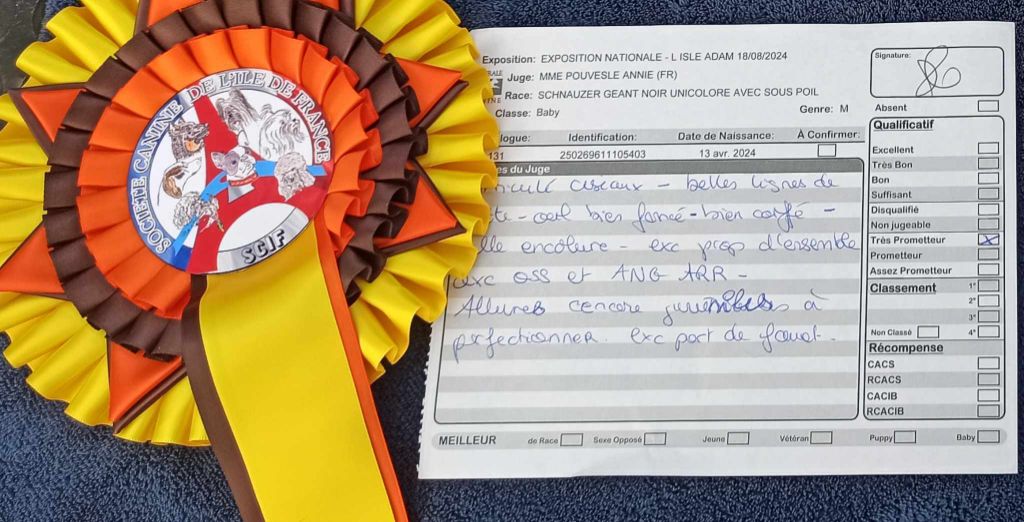 SOCIETE CANINE DE L'ILE DE FRANCE
SCIF
Exposition: EXPOSITION NATIONALE - L ISLE ADAM 18/08/2024
Juge: MME POUVESLE ANNIE (FR)
Race: SCHNAUZER GEANT NOIR UNICOLORE AVEC SOUS POIL
Classe: Baby
Genre: M
Signature:
Absent
logue: Identification: Date de Naissance: À Confirmer:
131 250269611105403 13 avr. 2024
es du Juge
ciseaux - belles lignes de
te - œil bien foncé - bien coiffé -
lle encolure - exc prop d'ensemble
exc oss et ANG ARR -
Allures encore juvéniles à
perfectionner. exc port de fouet.
Qualificatif
Excellent
Très Bon
Bon
Suffisant
Disqualifié
Non jugeable
Très Prometteur X
Prometteur
Assez Prometteur
Classement 1°
2°
3°
Non Classé 4°
Récompense
CACS
RCACS
CACIB
RCACIB
MEILLEUR de Race Sexe Opposé Jeune Vétéran Puppy Baby